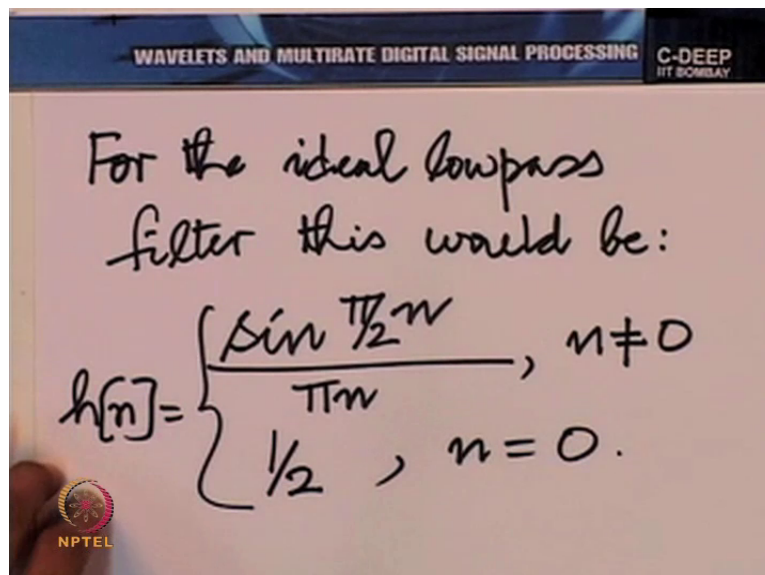 WAVELETS AND MULTIRATE DIGITAL SIGNAL PROCESSING
C-DEEP
IIT BOMBAY
For the ideal lowpass
filter this would be:
h[n] = { sin π/2 n / πn , n ≠ 0
1/2 , n = 0.
NPTEL